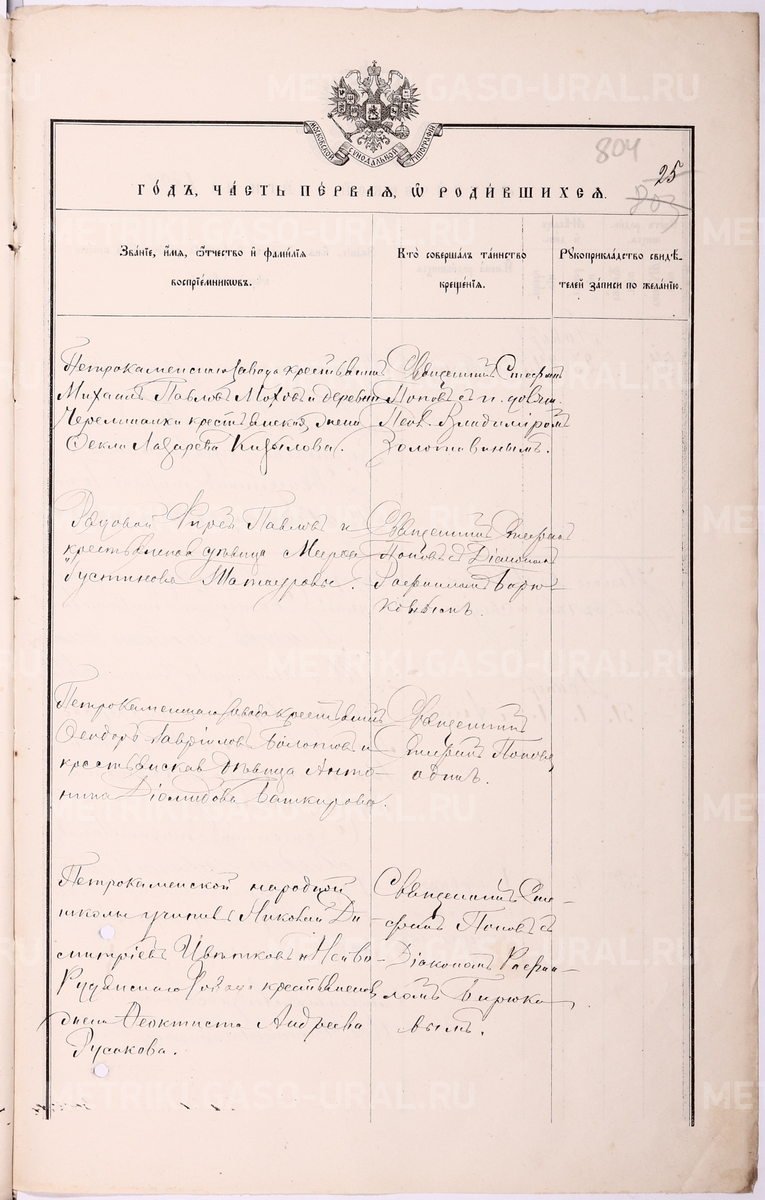 METRIKI.GASO-URAL.RU
МОСКОВСКОЙ СѴНОДАЛЬНОЙ ТИПОГРАФІИ
804
25
803
ГО́ДЪ, ЧА́СТЬ ПЕ́РВАЯ, Ѽ РОДИ́ВШИХСЯ.
Зва́нїе, и҆́мя, ѻ҆́тчество и҆ фами́лїя
воспрїе́мникωвъ.
Кто̀ соверша́лъ та́инство
креще́нїя.
Рꙋкоприкла́дство свидѣ́-
телей за́писи по жела́нїю.
Петрокаменскаго завода крестьянинъ
Михаилъ Павловъ Моховъ и деревни
крестьянская жена
Ѳекла Лазарева Кизилова.
Священникъ Стефанъ
Поповъ съ
Владиміромъ
Золотавинымъ.
Рядовой Павловъ и
крестьянская дѣвица
Устинова
Священникъ Стефанъ
Поповъ съ Діакономъ
Рафаиломъ Бирю-
ковымъ.
Петрокаменскаго завода крестьянинъ
Ѳеодоръ Гавріиловъ Болотовъ и
крестьянская дѣвица Анто-
нина Діомидова Башкирова.
Священникъ
Стефанъ Поповъ
одинъ.
Петрокаменской народной
школы учитель Николай Ди-
митріевъ Цвѣтковъ и Нейво-
Рудянскаго завода крестьянская
жена Ѳеоктиста Андреева
Русакова.
Священникъ Сте-
фанъ Поповъ съ
Діакономъ Рафаи-
ломъ Бирюко-
вымъ.